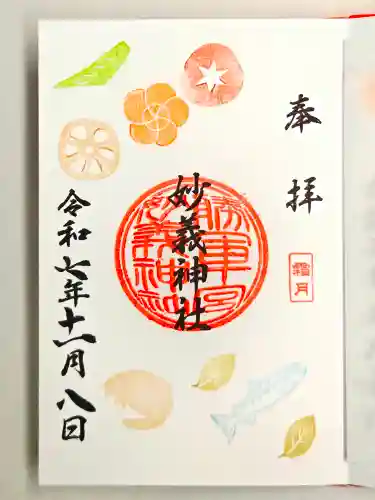 奉拝
霜月
妙義神社
令和七年十一月八日